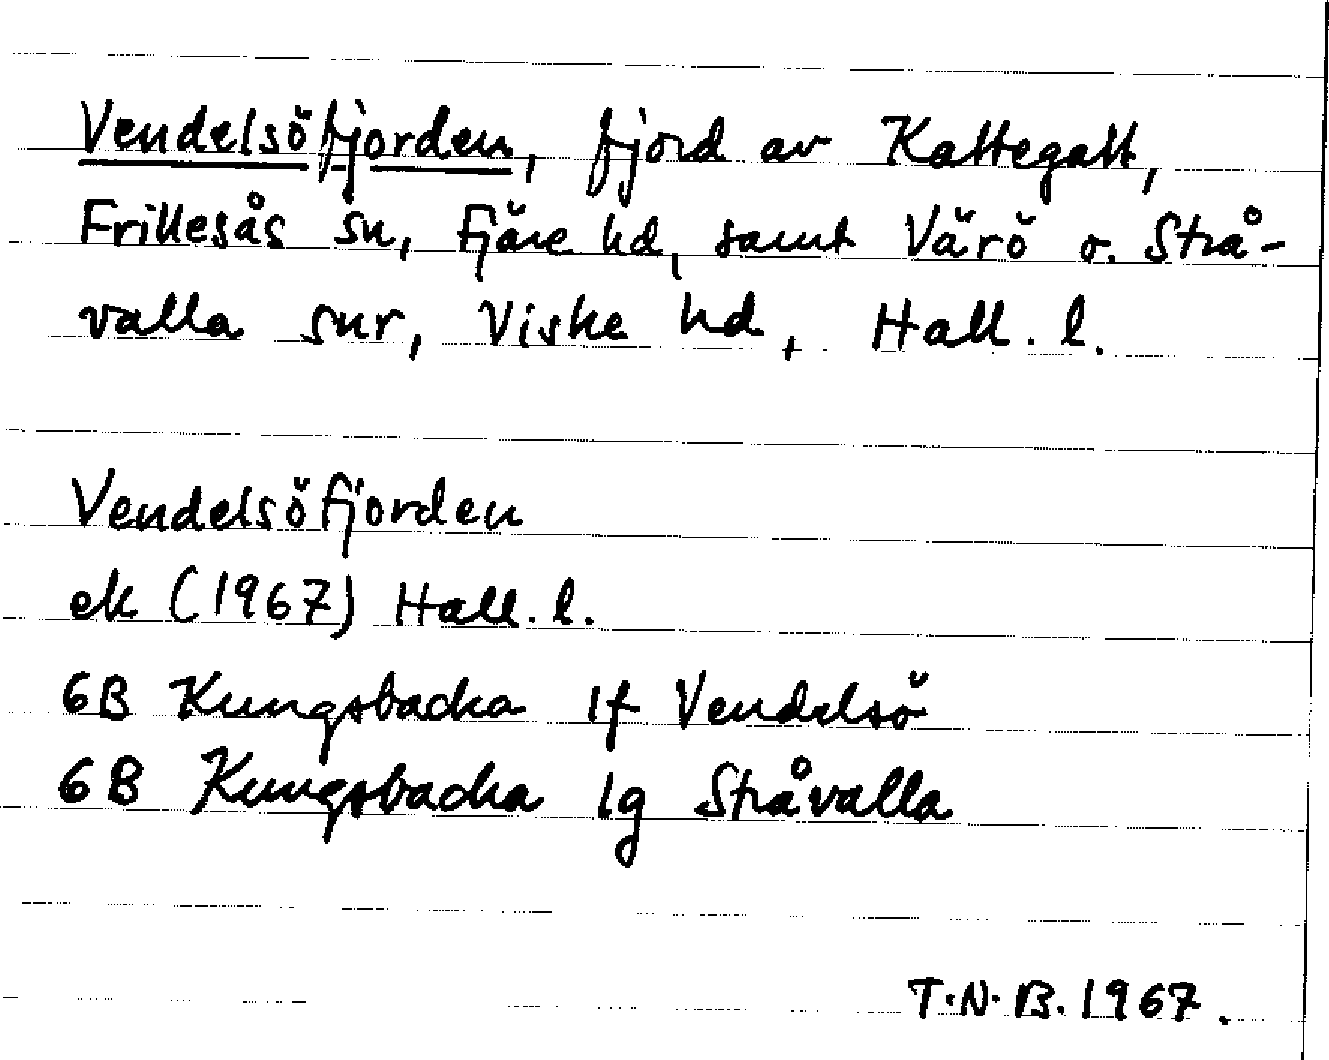 Vendelsöfjorden, fjord av Kattegatt,
Frillesås sn, Fjäre hd, samt Värö o. Strå-
valla snr, Viske hd, Hall. l.
Vendelsöfjorden
ek (1967) Hall. l.
6B Kungsbacka 1f Vendelsö
6B Kungsbacka 1g Stråvalla
T.N.B. 1967.